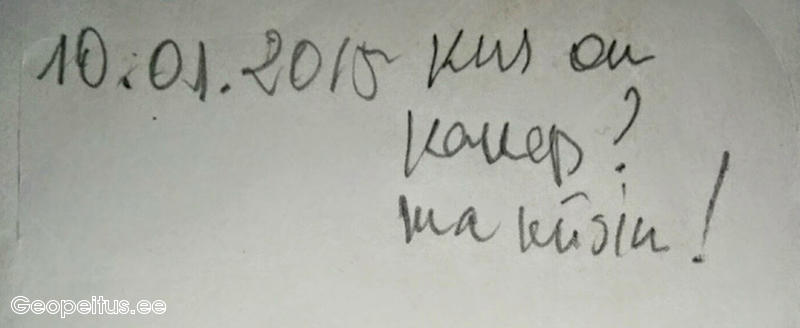 10.01.2015 kus on
kanep?
ma küsin!
Geopeitus.ee